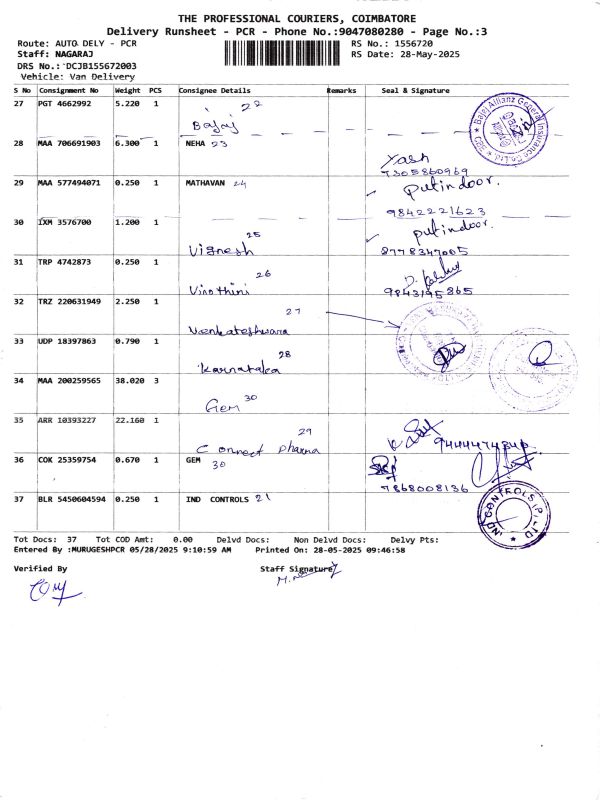 THE PROFESSIONAL COURIERS, COIMBATORE
Delivery Runsheet - PCR - Phone No.:9047080280 - Page No.:3
Route: AUTO DELY - PCR RS No.: 1556720
Staff: NAGARAJ RS Date: 28-May-2025
DRS No.: DCJB155672003
Vehicle: Van Delivery
S No Consignment No Weight PCS Consignee Details Remarks Seal & Signature
27 PGT 4662992 5.220 1 22
Bajaj
28 MAA 706691903 6.300 1 NEHA 23
Yash
7305860969
29 MAA 577494071 0.250 1 MATHAVAN 24 Putindoor.
9842221623
30 IXM 3576700 1.200 1 putindoor.
25
Vignesh 8778347005
31 TRP 4742873 0.250 1
26
Vinothini 9843195865
32 TRZ 220631949 2.250 1
27
Venkateshwara
33 UDP 18397863 0.790 1
28
Karnataka
34 MAA 200259565 38.020 3
30
Gem
35 ARR 10393227 22.160 1
29
Connect pharma
36 COK 25359754 0.670 1 GEM
30
7868008136
37 BLR 5450604594 0.250 1 IND CONTROLS 21
IND CONTROLS (P) LTD
Tot Docs: 37 Tot COD Amt: 0.00 Delvd Docs: Non Delvd Docs: Delvy Pts:
Entered By :MURUGESHPCR 05/28/2025 9:10:59 AM Printed On: 28-05-2025 09:46:58
Verified By Staff Signature